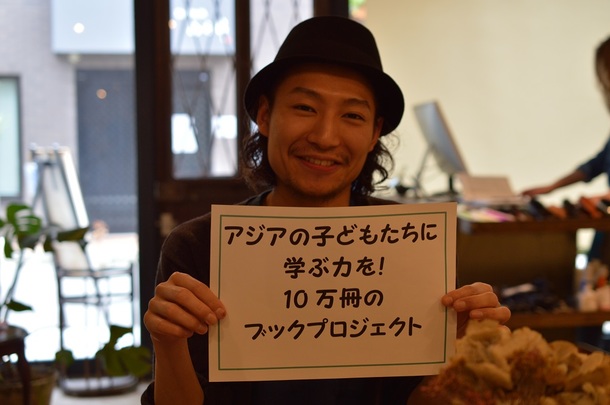 アジアの子どもたちに
学ぶ力を!
10万冊の
ブックプロジェクト